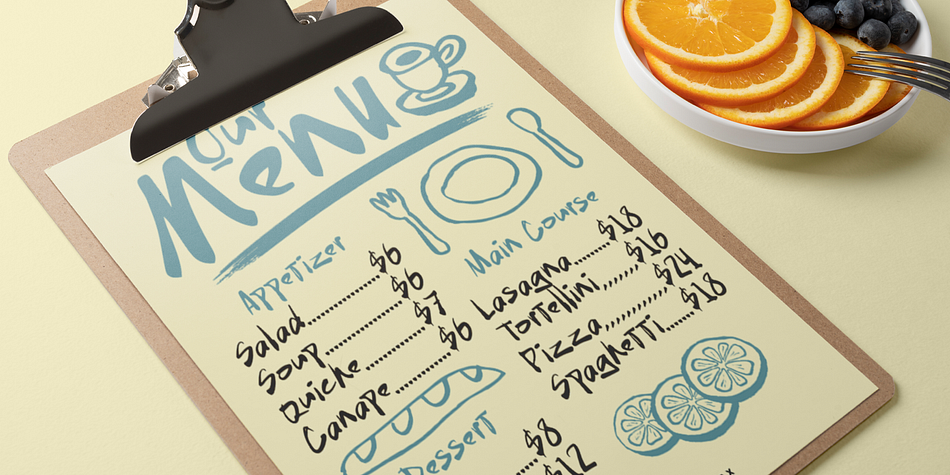 Our
Menu
Appetizer
Salad..............$6
Soup..............$6
Quiche..............$7
Canape..............$6
Main Course
Lasagna......$18
Tortellini......$16
Pizza............$24
Spaghetti......$18
Dessert
$8
$12